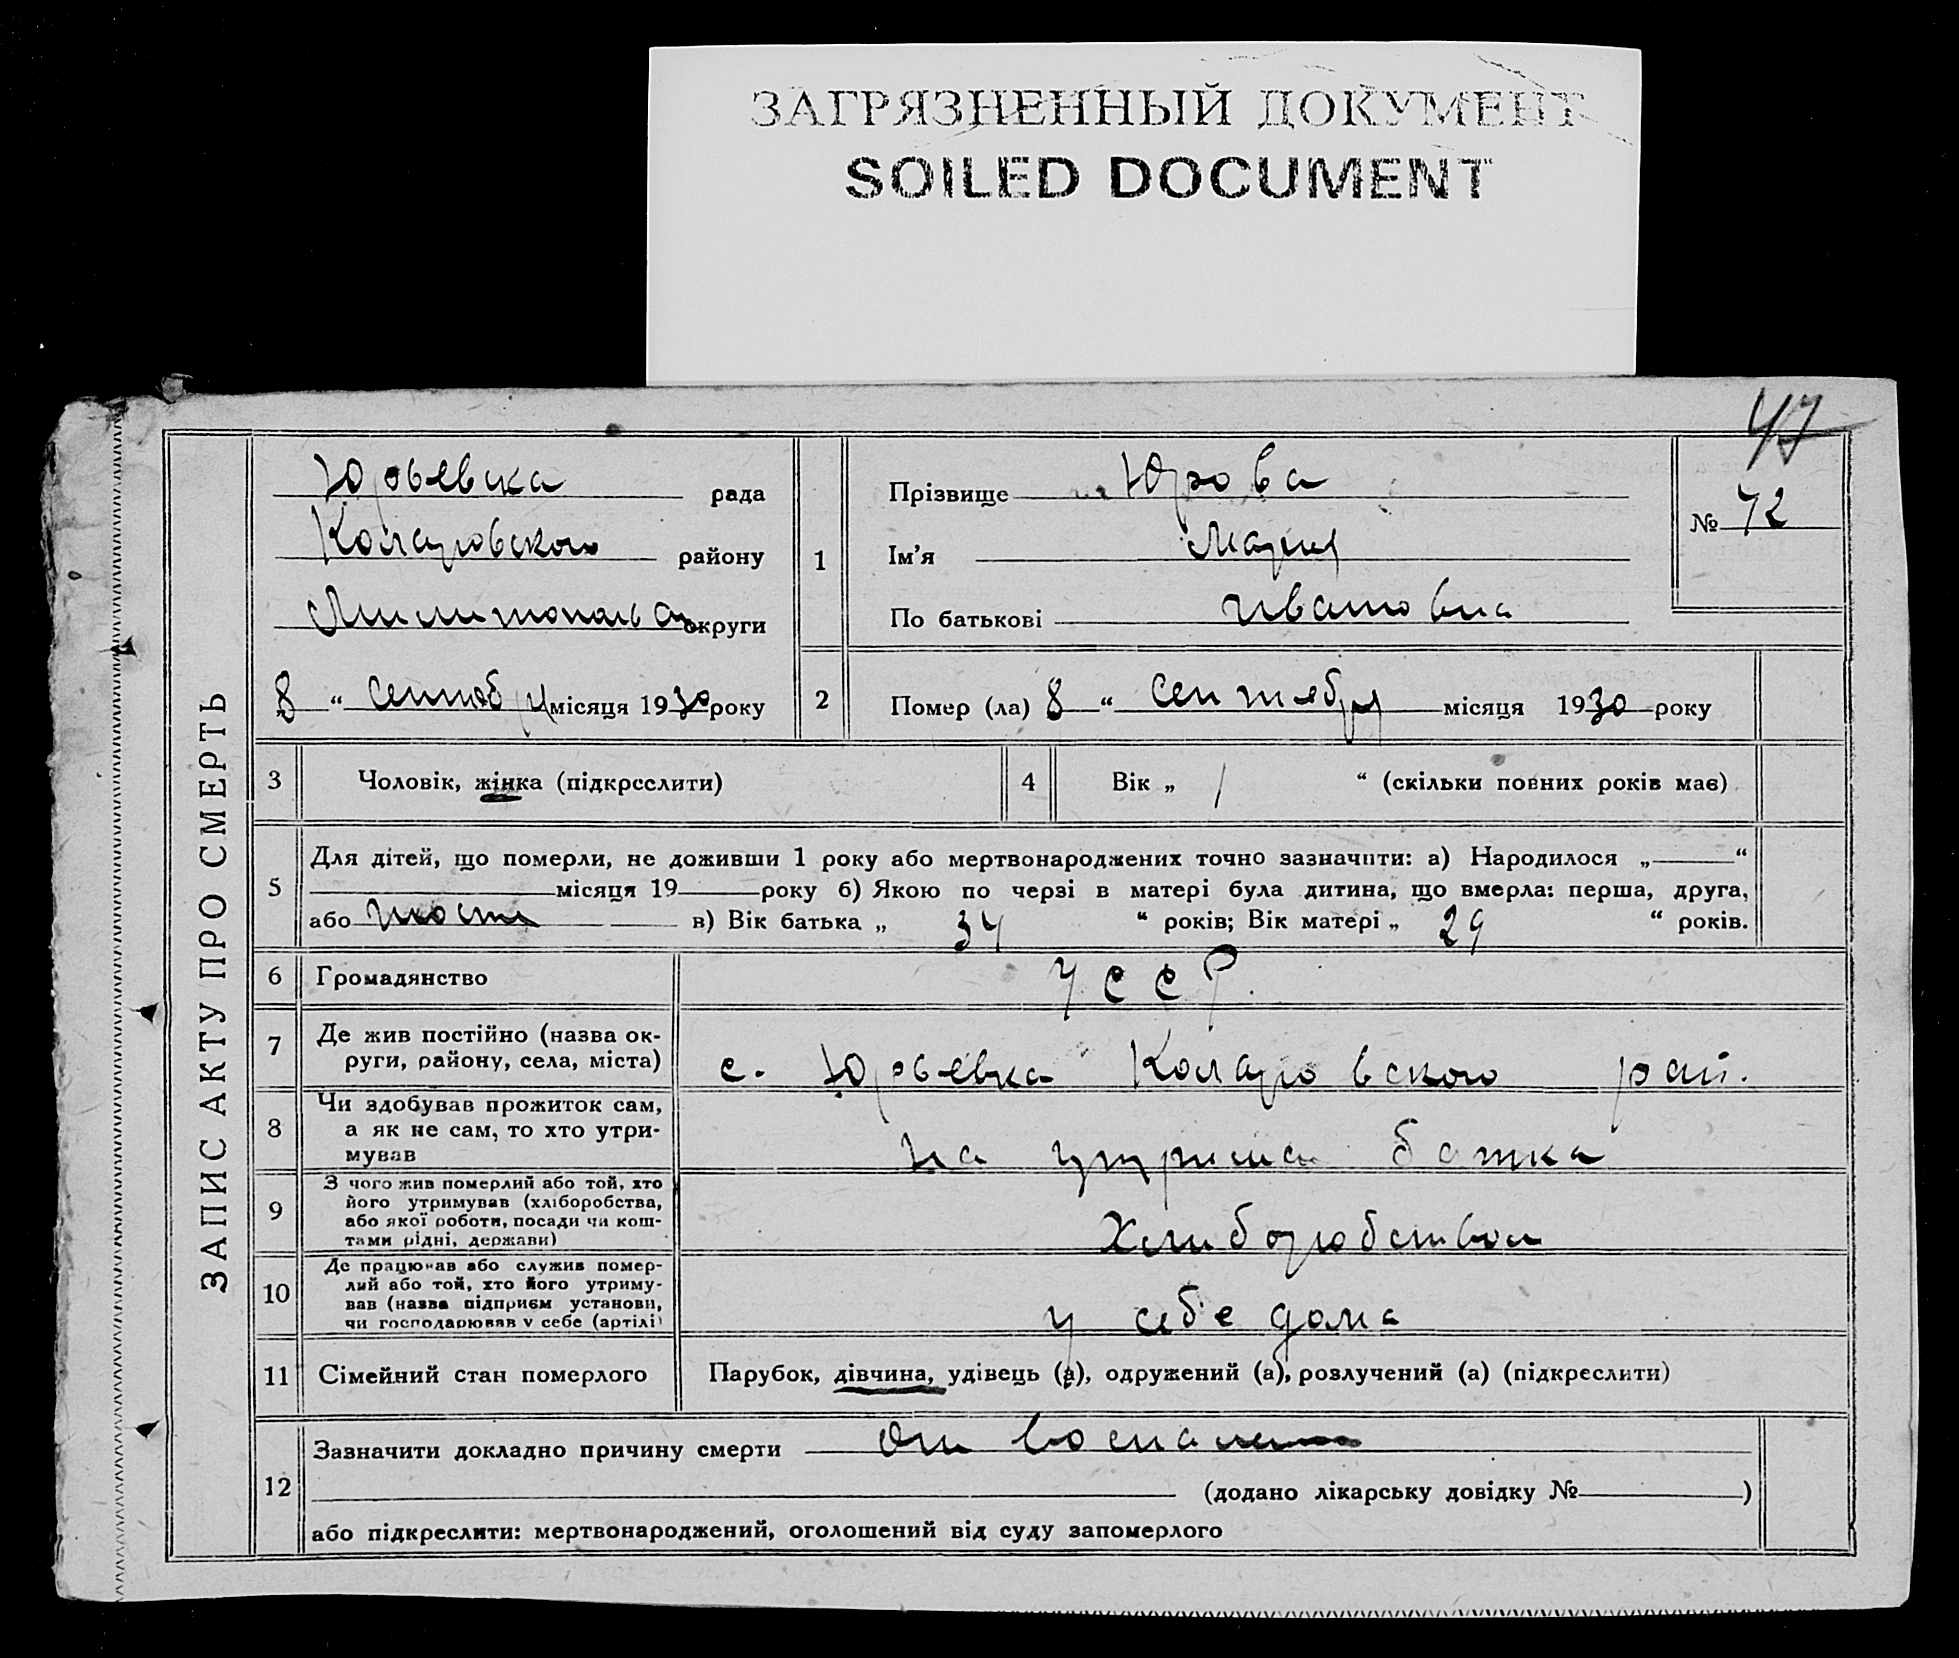 ЗАГРЯЗНЕННЫЙ ДОКУМЕНТ
SOILED DOCUMENT
47
ЗАПИС АКТУ ПРО СМЕРТЬ
Юрьевка рада
Коларовского району
округи
8 " сентяб місяця 1930 року
1
Прізвище Юрова
Ім'я Мария
По батькові Ивановна
№ 72
2
Помер (ла) 8 " сентября місяця 1930 року
3 Чоловік, жінка (підкреслити)
4 Вік „ 1 " (скільки повних років має)
5
Для дітей, що померли, не доживши 1 року або мертвонароджених точно зазначити: а) Народилося „ "
місяця 19 року б) Якою по черзі в матері була дитина, що вмерла: перша, друга,
або в) Вік батька „ 34 " років; Вік матері „ 29 " років.
6 Громадянство УССР.
7 Де жив постійно (назва ок-
руги, району, села, міста) с. Юрьевка Коларовского рай.
8 Чи здобував прожиток сам,
а як не сам, то хто утри-
мував на утрима батка
9 З чого жив померлий або той, хто
його утримував (хліборобства,
або якої роботи, посади чи кош-
тами рідні, держави) Хлиборобство
10 Де працював або служив помер-
лий або той, хто його утриму-
вав (назва підприєм установи,
чи господарював у себе (артілі) у себе дома
11 Сімейний стан померлого Парубок, дівчина, удівець (а), одружений (а), розлучений (а) (підкреслити)
12
Зазначити докладно причину смерти От
(додано лікарську довідку № )
або підкреслити: мертвонароджений, оголошений від суду запомерлого